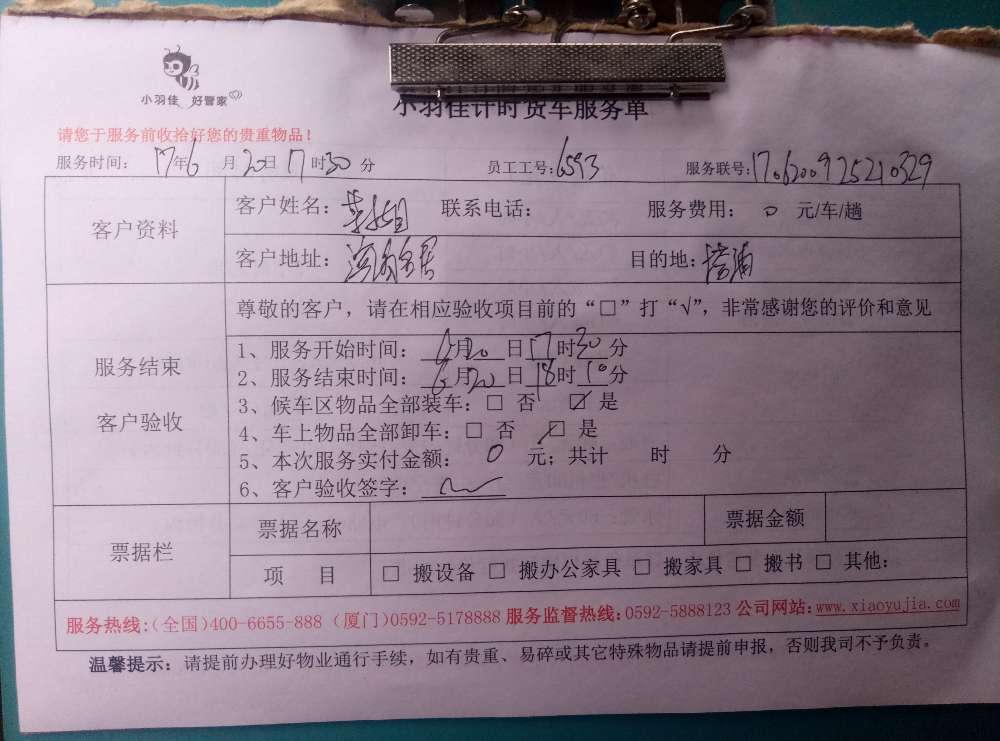 小羽佳 好管家
小羽佳计时货车服务单
请您于服务前收拾好您的贵重物品！
服务时间： 17年6月20日17时30分 员工工号:6593 服务联号:1706200925210329
客户资料
客户姓名： 联系电话： 服务费用： 0 元/车/趟
客户地址： 目的地:
服务结束
客户验收
尊敬的客户，请在相应验收项目前的“□”打“√”，非常感谢您的评价和意见
1、服务开始时间：6月20日17时30分
2、服务结束时间：6月20日18时10分
3、候车区物品全部装车：□ 否 ☑ 是
4、车上物品全部卸车：□ 否 ☑ 是
5、本次服务实付金额： 0 元；共计 时 分
6、客户验收签字：
票据栏
票据名称 票据金额
项 目 □ 搬设备 □ 搬办公家具 □ 搬家具 □ 搬书 □ 其他:
服务热线:(全国)400-6655-888 (厦门)0592-5178888 服务监督热线:0592-5888123 公司网站:www.xiaoyujia.com
温馨提示：请提前办理好物业通行手续，如有贵重、易碎或其它特殊物品请提前申报，否则我司不予负责。